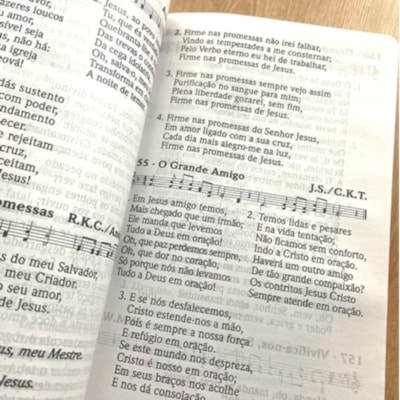 azeres loucos
seu amor,
ível seja
ou, não há:
Jesus, ao po
Tu, que és
Quebran
Das trevas
Da coga ido
Oh, salva-o
Transforma em
A noite de
dás sustento
com poder,
andamento
ecer.
e rejeitam
cruz,
ceitam,
Jesus!
omessas R.K.C./A
s do meu Salvador,
meu Criador.
o seu amor,
de Jesus.
us, meu Mestre.
Jesus.
2. Firme nas promessas não irei falhar,
Vindo as tempestades a me consternar;
Pelo Verbo eterno eu hei de trabalhar,
Firme nas promessas de Jesus.
3. Firme nas promessas sempre vejo assim
Purificação no sangue para mim;
Plena liberdade gozarei, sem fim,
Firme nas promessas de Jesus.
4. Firme nas promessas do Senhor Jesus,
Em amor ligado com a sua cruz,
Cada dia mais alegro-me na luz,
Firme nas promessas de Jesus.
55 - O Grande Amigo J.S./C.K.T.
Em Jesus amigo temos,
Mais chegado que um irmão;
Ele manda que levemos
Tudo a Deus em oração!
Oh, que paz perdemos sempre,
Oh, que dor no coração,
Só porque nós não levamos
Tudo a Deus em oração!
2. Temos lidas e pesares
E na vida tentação;
Não ficamos sem conforto,
Indo a Cristo em oração.
Haverá um outro amigo
De tão grande compaixão?
Os contritos Jesus Cristo
Sempre atende em oração.
3. E se nós desfalecemos,
Cristo estende-nos a mão,
Pois é sempre a nossa força
E refúgio em oração.
Se este mundo nos despreza,
Cristo é nosso em oração;
Em seus braços nos acolhe
E nos dá consolação